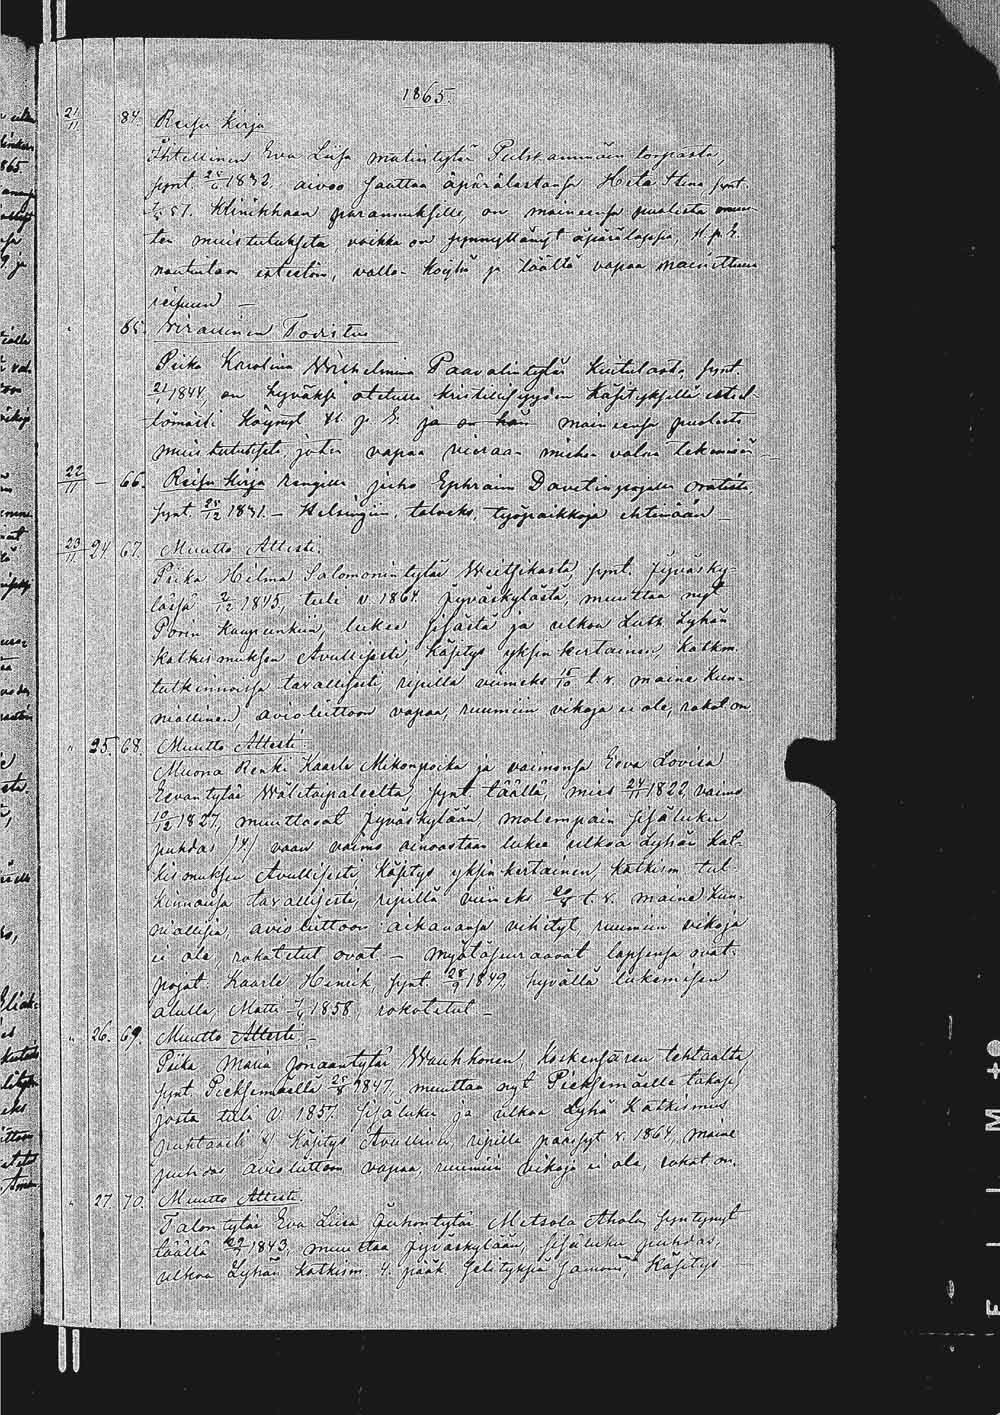 1865.
21/11 84. Reisu Kirja
Ihtellinen Eva Liisa Matintytär torpasta,
synt. 1832. aivoo saattaa äpärälastansa Heta Stina synt.
51. Klinikkaan parannuksille, on maineensa puolesta
ten muistutuksita vaikka on synnyttänyt äpärälapsia, H. p. E.
nautintoon esteetön, vallo- köyhä ja täältä vapaa mainittuun
reisuun —
" 65. Virallinen Todistus
Piika Karolina Wilhelmina Paavalintytär synt.
21/1 1844, on hyväksi otetulla kristillisyyden käsityksillä esteet-
tömästi käynyt H. p. E. ja on hän maineensa puolesta
muistutuksita, joten vapaa vieraan miehen valaa tekemään —
22/11 — 66. Reisu Kirja Rengille Juho Ephraim Davidinpojalle
synt. 25/12 1831. — Helsingiin, talveks, työpaikkoja ehtimään —
23/11 24. 67. Muutto Attesti.
Piika Hilma Salomonintytär synt. Jyväsky-
lässä 2/12 1845, tuli v. 1864 Jyväskylästä, muuttaa nyt
Porin Kaupunkiin, lukee sisästä ja ulkoa Luth. Lyhän
Katkismuksen Avullisesti, Käsitys yksinkertainen, Katkm.
tutkinnoissa tavallisesti, ripillä viimeks 15/10 t. v. maine kun-
niallinen, avioliittoon vapaa, ruumiin vikoja ei ole, rokot on
" 25. 68. Muutto Attesti.
Muona Renki Kaarle Mikonpoika ja vaimonsa Eeva Lovisa
Eevantytär Wälitaipaleelta synt täällä, mies 24/11 1822 vaimo
10/12 1827, muuttavat Jyväskylään, molempain sisäluku
puhdas /4/ vaan vaimo ainoastaan lukee ulkoa Lyhän Kat-
kismuksen Avullisesti, Käsitys yksinkertainen, Katkism. tut-
kinnoissa tavallisesti, ripillä viimeks t. v. maine kun-
niallisia, avioliittoon aikanansa vihityt, ruumiin vikoja
ei ole, rokotetut ovat — myötäseuraavat lapsensa ovat.
pojat Kaarle Henrik, synt. 28/9 1849, hyvällä lukemisen
alulla, Matti 1858, rokotetut —
" 26. 69. Muutto Attesti. —
Piika Maria Joonaantytär Wauhkonen, Koskensaaren tehtaalta
synt. Pieksemäellä 25/8 1847, muuttaa nyt Pieksemäelle takasi,
josta tuli v. 1857. Sisäluku ja ulkoa Lyhä Katkismus
puhtaasti 4/ Käsitys Avullinen, ripille päässyt v. 1864, maine
puhdas avioliittoon vapaa, ruumiin vikoja ei ole, rokot on.
" 27. 70. Muutto Attesti.
Talontytär Eva Liisa Juhontytär Metsola Ahola, syntynyt
täällä 1843, muuttaa Jyväskylään, sisäluku puhdas,
ulkoa Lyhän Katkism. 4. pääk. Selityksiä samoin, Käsitys